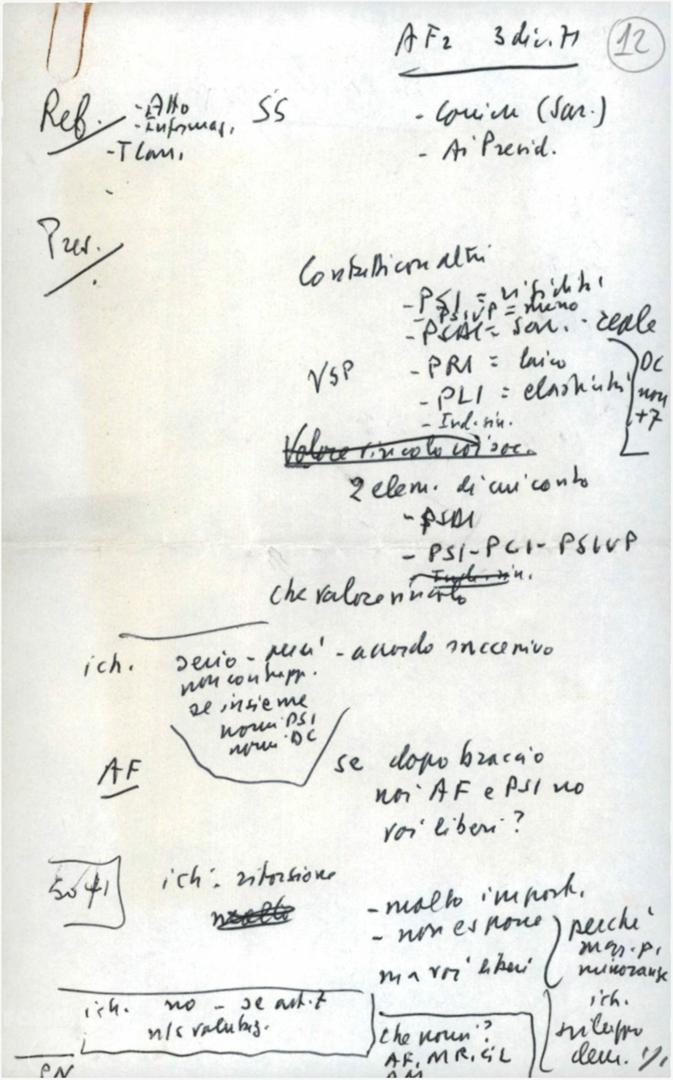 AF2 3 div. 71
12
Ref. - Atto SS
- Informaz.
- T Com.
- (Sar.)
- Ai Presid.
Pres.
Contatti con altri
- PSI = rigidità
- PSIUP = meno
- PSDI = Sar. - reale
VSP - PRI = laico
- PLI = elasticità
- Ind. sin.
DC
non
+7
Valore vincolo coi soc.
2 elem. di cui conto
- PSDI
- PSI - PCI - PSIUP
Ind. sin.
che valore vincolo
ich. serio - perciò - accordo successivo
non contrapp.
se insieme
nomi PSI
nomi DC
AF
se dopo braccio
noi AF e PSI no
voi liberi?
ich. ritorsione
molto
- molto import.
- non espone
ma voi liberi
perché
magg. p.
minoranze
ich. no - se art. 7
n/s valutaz.
che nomi?
AF, MR, GL
AM
ich.
sviluppo
dem. %
PN